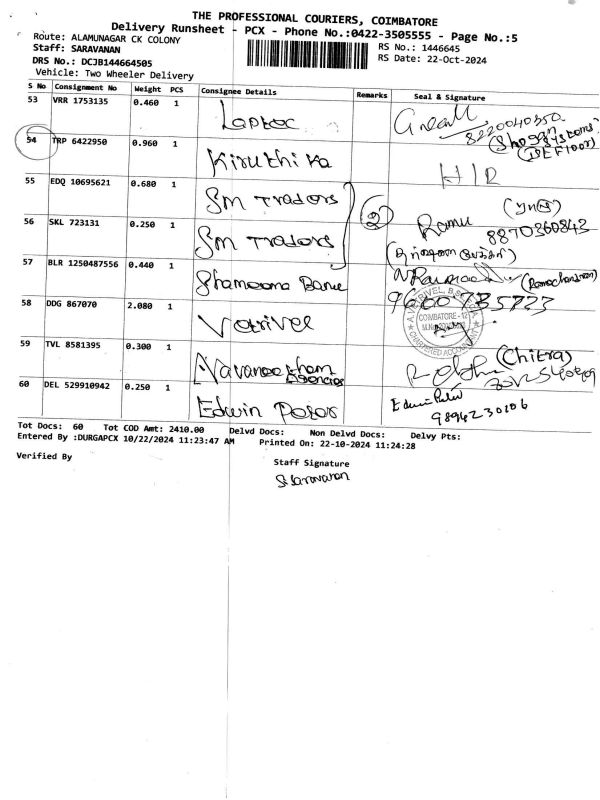 THE PROFESSIONAL COURIERS, COIMBATORE
Delivery Runsheet - PCX - Phone No.:0422-3505555 - Page No.:5
Route: ALAMUNAGAR CK COLONY
RS No.: 1446645
Staff: SARAVANAN
RS Date: 22-Oct-2024
DRS No.: DCJB144664505
Vehicle: Two Wheeler Delivery
S No Consignment No Weight PCS Consignee Details Remarks Seal & Signature
53 VRR 1753135 0.460 1 Laptoc
8220040350
54 TRP 6422950 0.960 1 Kiruthika
55 EDQ 10695621 0.680 1 Sm Tradors
2
Ramu
8870360843
56 SKL 723131 0.250 1 Sm Tradors
57 BLR 1250487556 0.440 1 Shameema Banu
(Ramachandran)
9600735723
58 DDG 867070 2.080 1 Vetrivel
COIMBATORE - 12
CHARTERED ACCOUNTANT
59 TVL 8581395 0.300 1 Navaneetham Agencies
(Chitra)
60 DEL 529910942 0.250 1 Edwin Peter
9894230206
Tot Docs: 60 Tot COD Amt: 2410.00 Delvd Docs: Non Delvd Docs: Delvy Pts:
Entered By :DURGAPCX 10/22/2024 11:23:47 AM Printed On: 22-10-2024 11:24:28
Verified By
Staff Signature
S. Saravanan